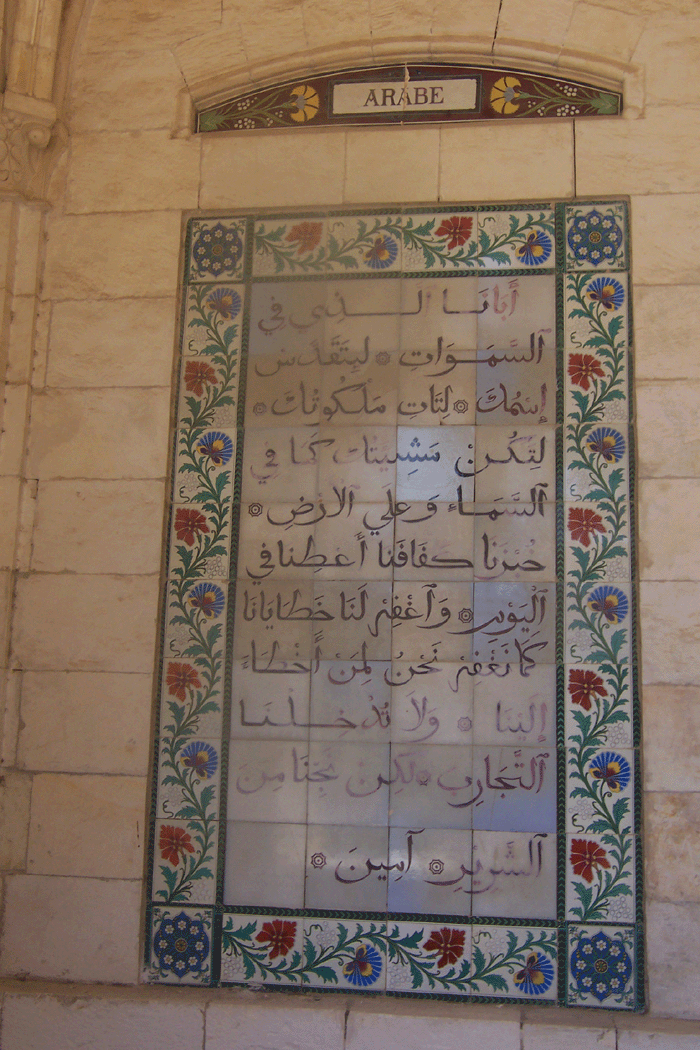 ARABE
أَبَانَا الَّذِي فِي
ٱلسَّمَوَاتِ * لِيَتَقَدَّسِ
إِسْمُكَ * لِتَاتِ مَلَكُوتُكَ *
لِتَكُنْ مَشِيئتك كَمَا فِي
ٱلسَّمَاءِ وَعلَي ٱلارْضِ *
خُبْزَنَا كفَافَنا أَعْطِنا فِي
ٱلْيَوْمِ * وَٱغْفِرْ لَنَا خَطَايَانَا
كَمَا نَغْفِرْ نَحْنُ لِمَنْ أَخْطَاءَ
إِلَيْنَا * وَلاَ تُدْخِلْنَا
ٱلتَّجَارِبِ * لكِنْ نَجِّنَا مِنَ
ٱلشِّرِيرِ * آمِينَ *